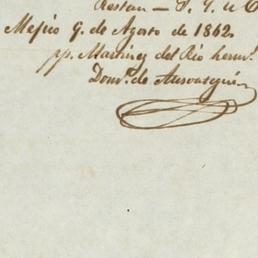 Restan — P. Y. u O
Mejico 9. de Agosto de 1862.
pp. Martinez del Rio herm.s
Dom.o de Ansoategui